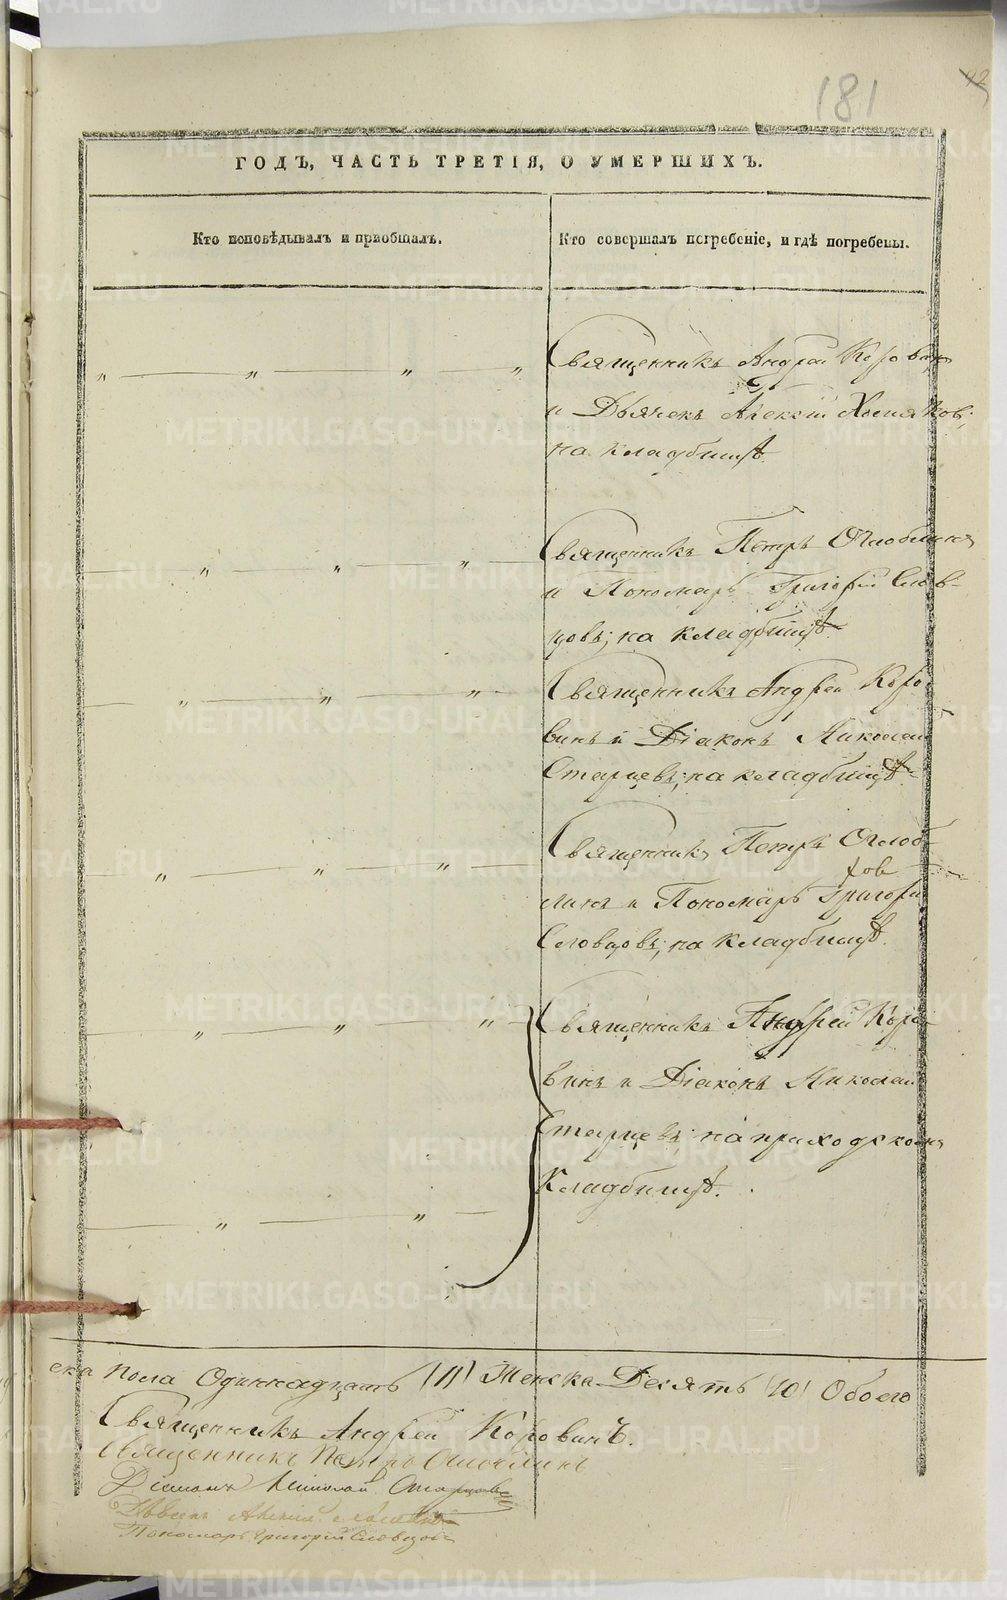 181
42
ГОДЪ, ЧАСТЬ ТРЕТІЯ, О УМЕРШИХЪ.
Кто исповѣдывалъ и пріобщалъ.
Кто совершалъ погребеніе, и гдѣ погребены.
„ „ „ „
Священникъ Андрей Коровинъ
и Дьячекъ Алексій Хомяковъ;
на кладбищѣ.
„ „ „
Священникъ Петръ Оглоблинъ
и Пономарь Григорій Слов-
цовъ; на кладбищѣ.
„ „ „
Священникъ Андрей Коро-
винъ и Діаконъ Николай
Старцевъ; на кладбищѣ.
„ „ „
Священникъ Петръ Оглоб-
линъ и Пономарь Григорій
Словцовъ; на кладбищѣ.
„ „ „
Священникъ Андрей Коро-
винъ и Діаконъ Николай
Старцевъ; на приходскомъ
Кладбищѣ.
„ „
ска пола Одиннадцать (11) Женска Десять (10) Обоего
Священникъ Андрей Коровинъ.
Священникъ Петръ Оглоблинъ
Діаконъ Николай Старцовъ
Пономарь Григорій Словцовъ
METRIKI.GASO-URAL.RU